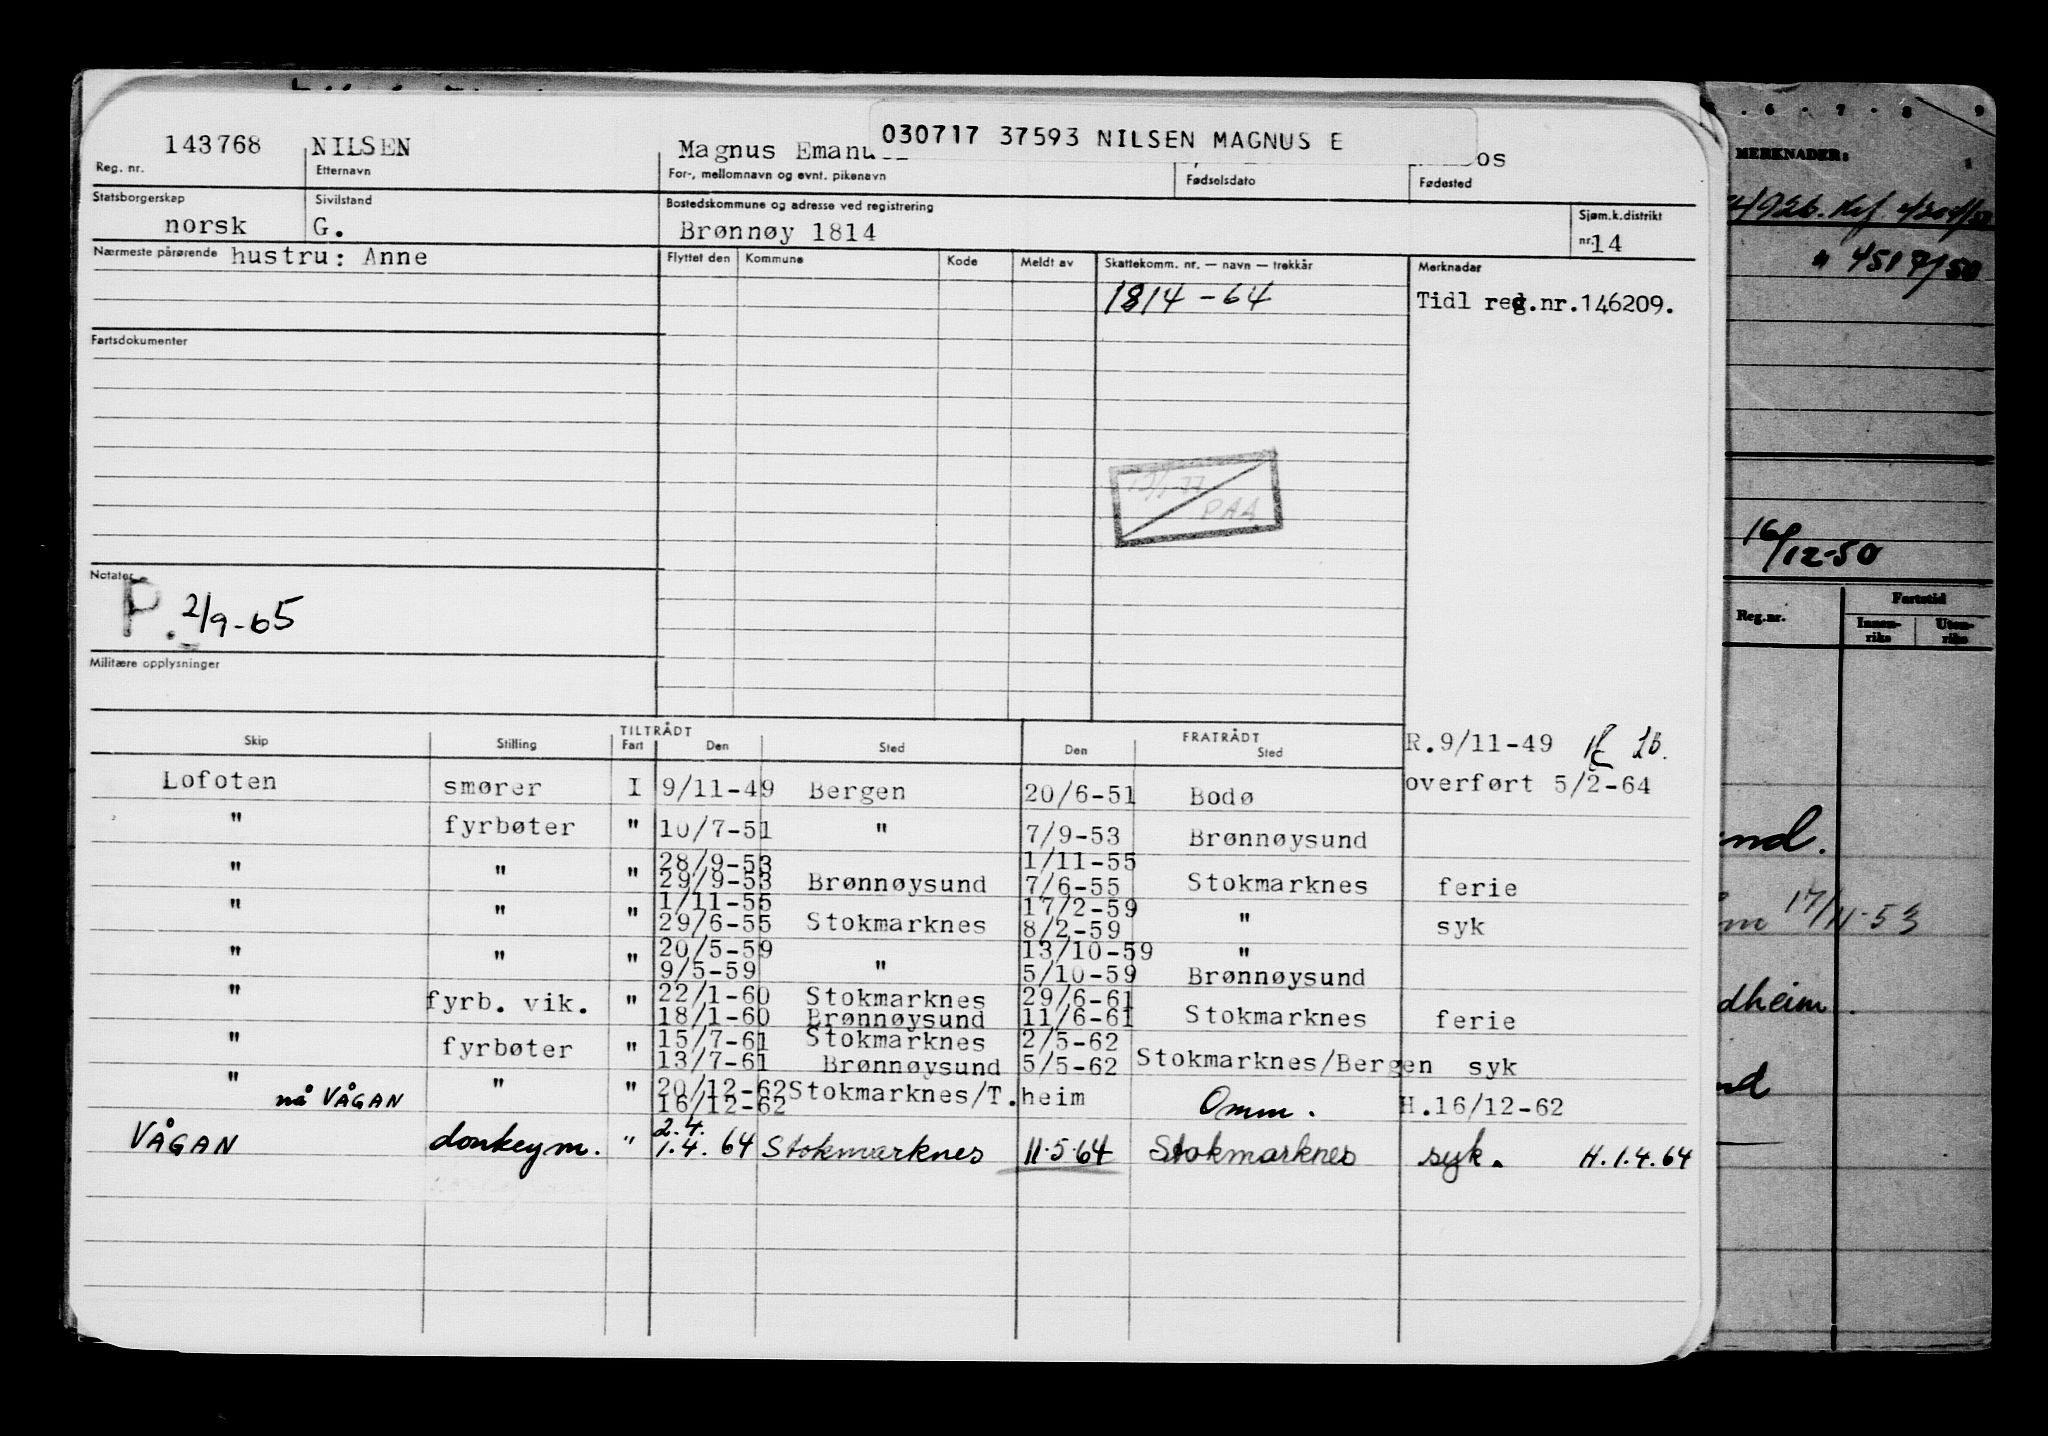 030717 37593 NILSEN MAGNUS E
143768 NILSEN Magnus Emanuel
Reg. nr. Etternavn For-, mellomnavn og evnt. pikenavn Fødselsdato Fødested
Statsborgerskap Sivilstand Bostedskommune og adresse ved registrering Sjøm.k.distrikt
norsk G. Brønnøy 1814 nr. 14
Nærmeste pårørende hustru: Anne Flyttet den Kommune Kode Meldt av Skattekomm. nr. — navn — trekkår Merknader
1814 - 64 Tidl reg.nr.146209.
Fartsdokumenter
PAA
Notater
P. 2/9-65
Militære opplysninger
TILTRÅDT FRATRÅDT
Skip Stilling Fart Den Sted Den Sted R.9/11-49
Lofoten smører I 9/11-49 Bergen 20/6-51 Bodø overført 5/2-64
" fyrbøter " 10/7-51 " 7/9-53 Brønnøysund
28/9-53 1/11-55
" " " 29/9-53 Brønnøysund 7/6-55 Stokmarknes ferie
1/11-55 17/2-59
" " " 29/6-55 Stokmarknes 8/2-59 " syk
20/5-59 13/10-59 "
" " " 9/5-59 " 5/10-59 Brønnøysund
22/1-60 Stokmarknes 29/6-61
" fyrb. vik. " 18/1-60 Brønnøysund 11/6-61 Stokmarknes ferie
15/7-61 Stokmarknes 2/5-62
" fyrbøter " 13/7-61 Brønnøysund 5/5-62 Stokmarknes/Bergen syk
" " " 20/12-62 Stokmarknes/T.heim
nå VÅGAN 16/12-62 Omm. H.16/12-62
2.4.
VÅGAN donkeym. " 1.4. 64 Stokmarknes 11.5.64 Stokmarknes syk. H.1.4.64
6 . 7 . 8 . 9
MERKNADER:
" 4517/50
16/12-50
Reg.nr. Fartstid
Innen-riks Uten-riks
17/11-53